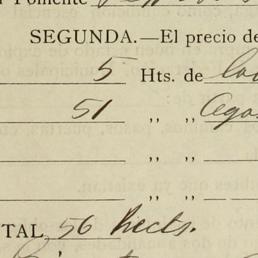 Fomente
SEGUNDA.—El precio de
5 Hts. de
51 ,, ,, Agos
,, ,,
,, ,,
TAL 56 hects.